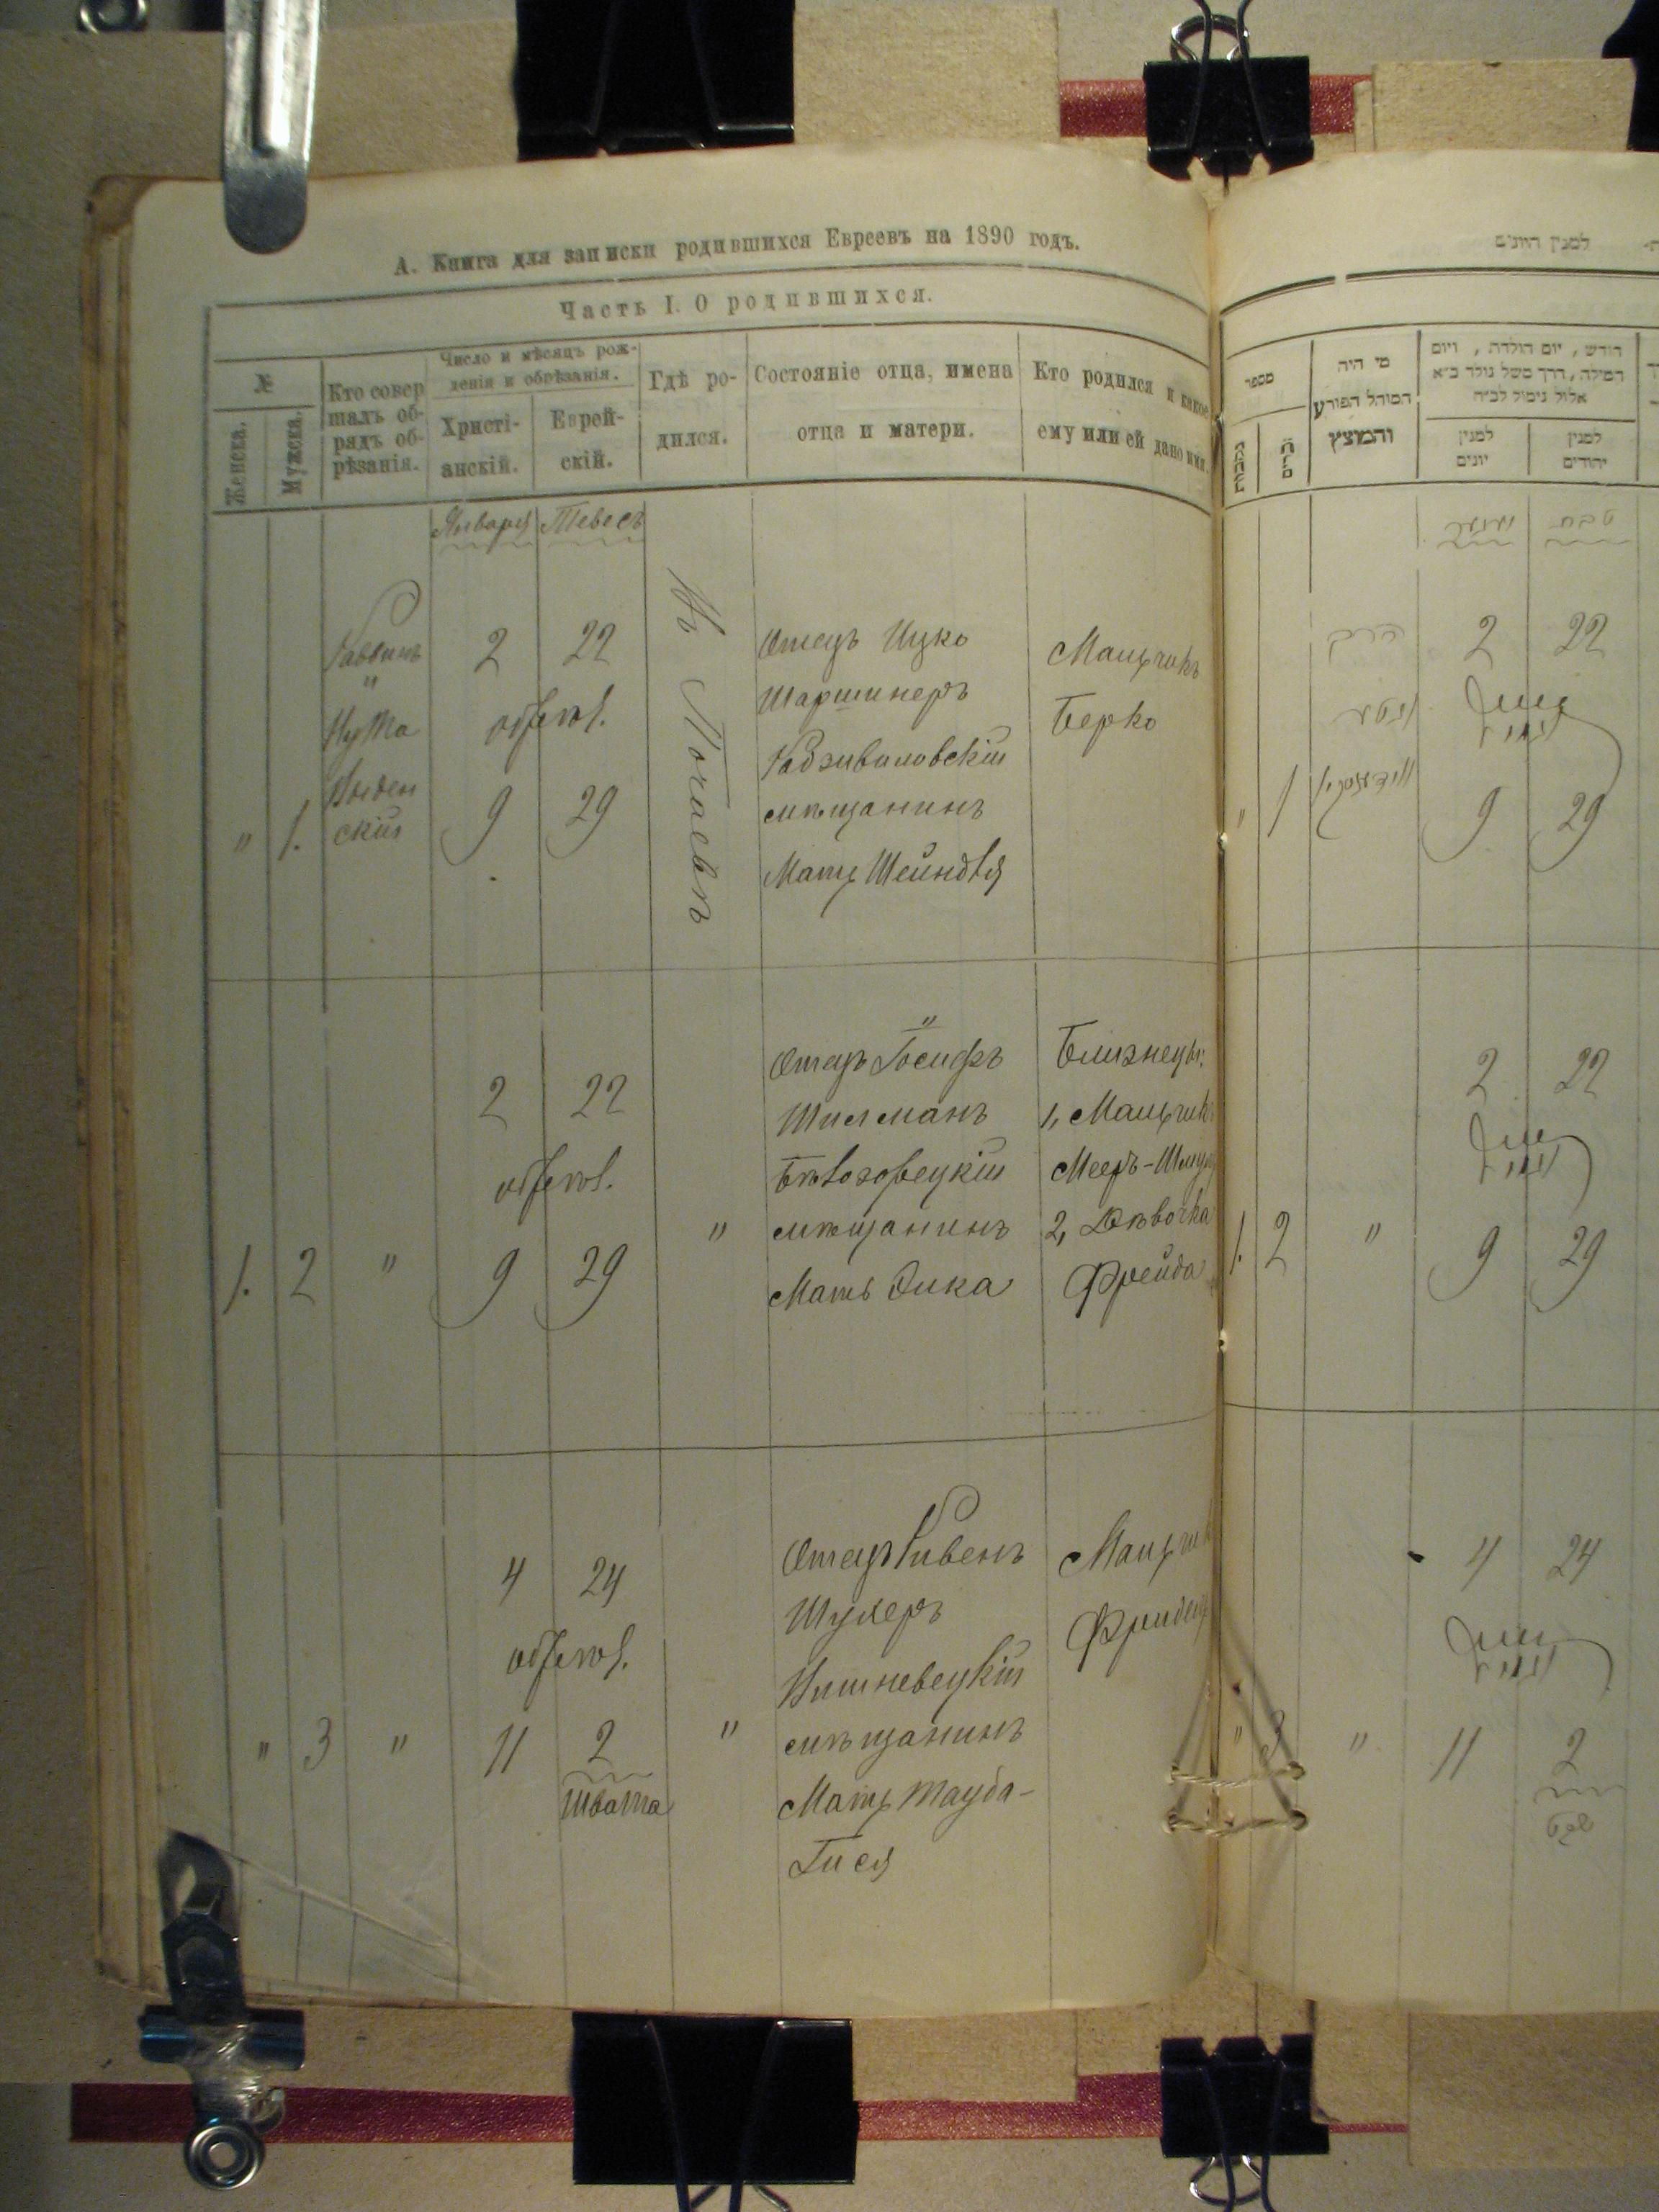 А. Книга для записки родившихся Евреевъ на 1890 годъ.
Часть I. О родившихся.
№
Женска.
Мужска.
Кто совер
шалъ об-
рядъ об-
рѣзанія.
Число и мѣсяцъ рож-
денія и обрѣзанія.
Христі-
анскій.
Еврей-
скій.
Гдѣ ро-
дился.
Состояніе отца, имена
отца и матери.
Кто родился и какое
ему или ей дано имя.
Января
Тевесъ
" 1.
Раввинъ
"
Нута
ский
2 22
обрѣзов.
9 29
Въ Почаевѣ
Отецъ Ицко
Радзивиловскій
мѣщанинъ
Мать Шейндля
Мальчикъ
Берко
1. 2 "
2 22
обрѣзов.
9 29
"
Отецъ Іосифъ
Бѣлозорецкій
мѣщанинъ
Мать Эйка
Близнецы:
1, Мальчикъ
Мееръ-
2, Дѣвочка
Фрейда
" 3 "
4 24
обрѣзов.
11 2
Швата
"
Отецъ Рувенъ
Вишневецкій
мѣщанинъ
Мать Тауба-
Гися
למנין היונים
מספר
נקבות
זכרים
מי היה
המוהל הפורע
והמוצץ
חודש, יום הולדת, ויום
המילה, דרך משל נולד ב׳א
אלול נימול לב׳ח
למנין
יונים
למנין
יהודים
יאנואר
טבת
הרב
נוטע
" 1
2 22
נימול
9 29
1. 2 "
2 22
נימול
9 29
" 3 "
4 24
נימול
11 2
שבט